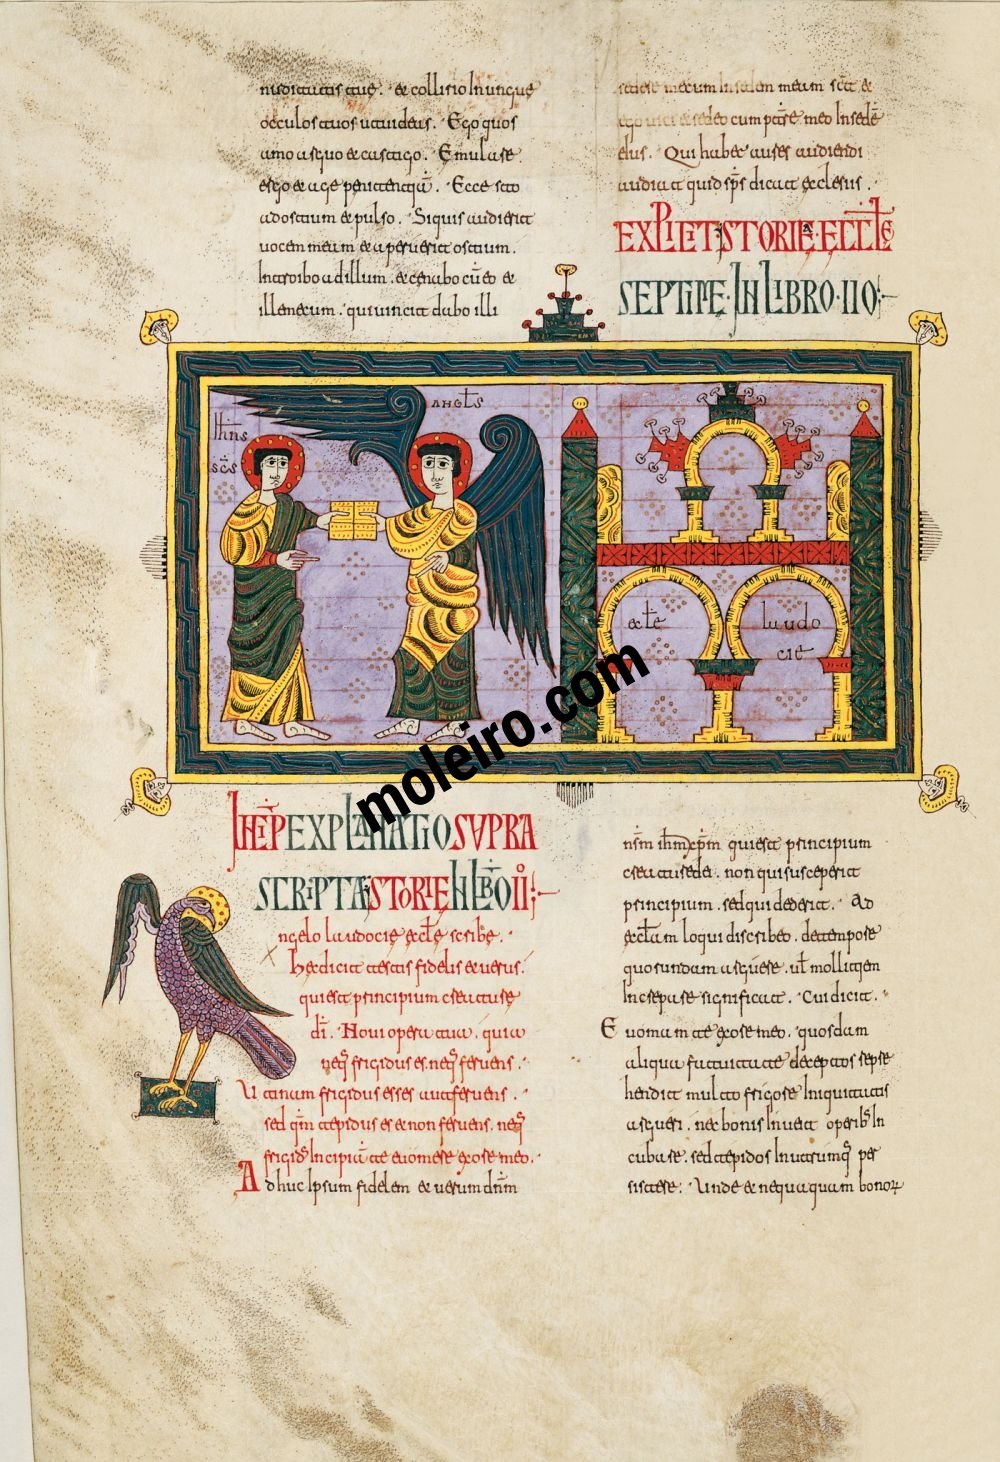 nuditatis tuę. et collirio Inunguę
occulos tuos ut uideas. Ego quos
amo arguo et castigo. Emulare
ergo et age penitentiā. Ecce sto
ad ostium et pulso. Si quis audierit
uocem meam et aperuerit ostium.
Introibo ad illum. et cenabo cū eo et
ille mecum. qui uincit dabo illi
sedere mecum In meum sc̄t et
ego uici et sedeo cum patre meo In sedē
eius. Qui habet aures audiendi
audiat quid sp̄s dicat ęclesiis.
EXPLICIT STORIE ECCLE
SEPTIME IN LIBRO IIO
ANGLS
IHNS
SCS
ecle
laudo
cie
INCIP EXPLANATIO SUPRA
SCRIPTAE STORIE IN LBO II
ngelo laudocię ęclę scribe.
hęc dicit testis fidelis et uerus.
qui est principium creaturę
dī. Noui opera tua. quia
neq; frigidus es. neq; feruens.
Utinam frigidus esses aut feruens.
sed qm̄ tepidus es et non feruens. neq;
frigid; Incipiā te euomere ex ore meo.
Adhuc Ipsum fidelem et uerum dn̄m
nsm ihm xpm qui est principium
creaturę dei. non qui susceperit
principium. sed qui dederit. Ad
ęclam loqui describet. de tempore
quorundam arguere. ut mollitiem
Increpare significat. Cui dicit.
Euomam te ex ore meo. quosdam
aliqua deceptos sepe
multo frigore Iniquitatis
argueri. nec bonis Inuenit operib; In
cubare. sed tepidos In utrumq; per
sistere. Unde et nequaquam bonoꝝ
moleiro.com